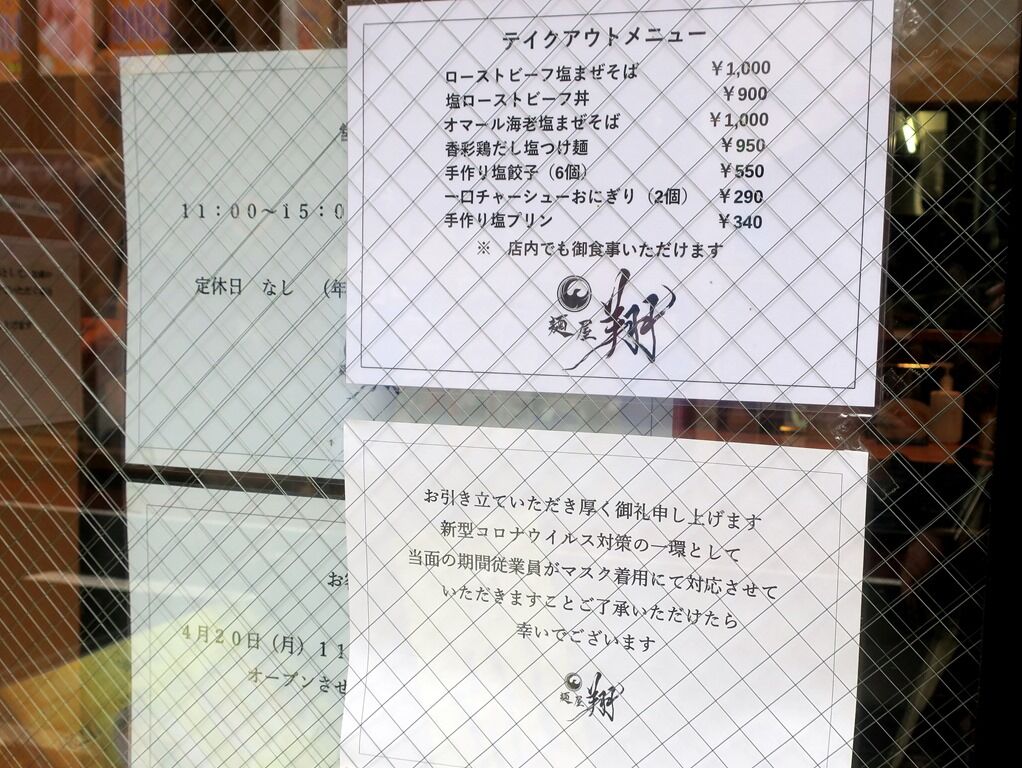 テイクアウトメニュー
ローストビーフ塩まぜそば ￥1,000
塩ローストビーフ丼 ￥900
オマール海老塩まぜそば ￥1,000
香彩鶏だし塩つけ麺 ￥950
手作り塩餃子（6個） ￥550
一口チャーシューおにぎり（2個） ￥290
手作り塩プリン ￥340
※ 店内でも御食事いただけます
麺屋 翔
11：00～15：0
定休日 なし （年
お引き立ていただき厚く御礼申し上げます
新型コロナウイルス対策の一環として
当面の期間従業員がマスク着用にて対応させて
いただきますことご了承いただけたら
幸いでございます
麺屋 翔
お
4月20日（月）11
オープンさせ